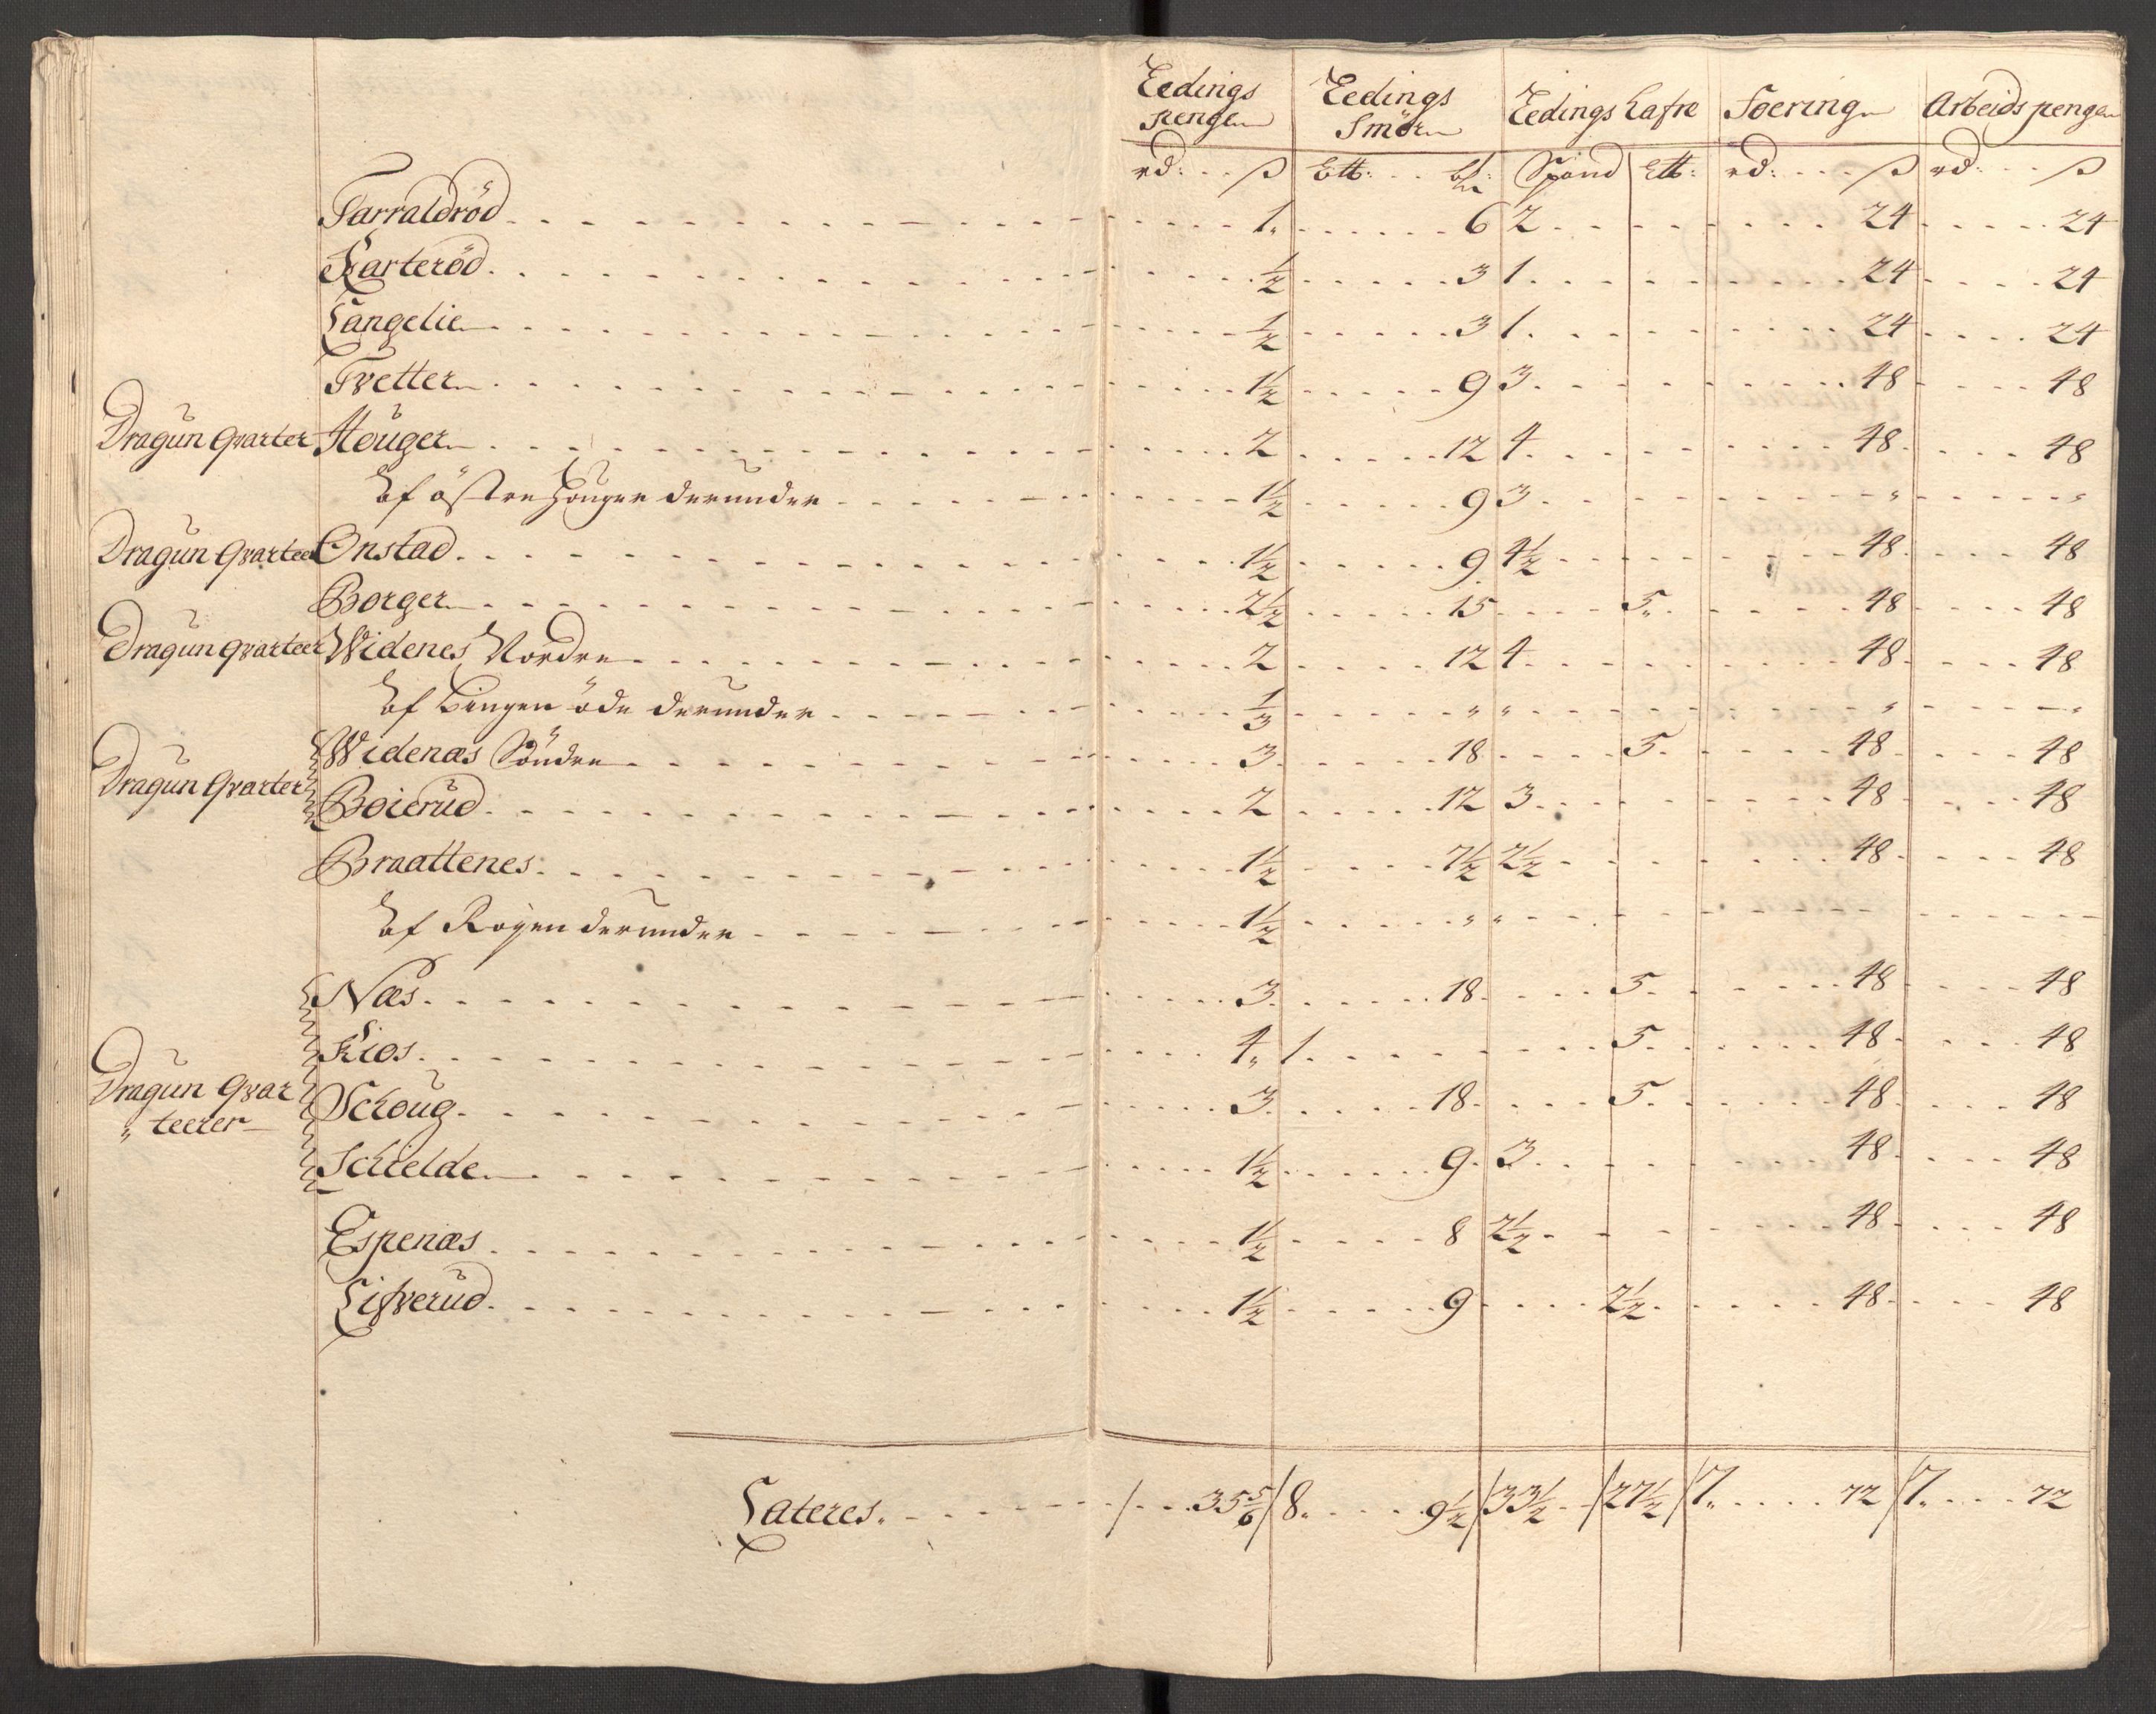 Leedings pengen | Leedings Smör | Leedings Hafre | Foering | Arbeids pengen
rd: ß | Ltt: bl: | Spand | Ltt: | rd: ß | rd: ß
Tarraldröd 1. 6 2 24 24
Karteröd ½ 3 1 24 24
Langelie ½ 3 1 24 24
Tvetter 1½ 9 3 48 48
Dragun Qvarter Houger 2 12 4 48 48
af östre Houger derunder 1½ 9 3 " "
Dragun Qvarteer Onstad 1½ 9 4½ 48 48
Borger 2½ 15 5 48 48
Dragun qvarteer Widenes Nordre 2 12 4 48 48
af Bingen öde derunder ⅓ " " " "
Widenæs Söndre 3 18 5 48 48
Dragun Qvarter Boierud 2 12 3 48 48
Braattenes 1½ 7½ 2½ 48 48
af Röyen derunder 1½ " "
Næs 3 18 5 48 48
Kios 4 1 5 48 48
Dragun Qvar Schoug 3 18 5 48 48
" teerer
Schielde 1½ 9 3 48 48
Espenæs 1½ 8 2½ 48 48
Lifverud 1½ 9 2½ 48 48
Lateres 35 5/6 8 9½ 33½ 27½ 7 72 7 72